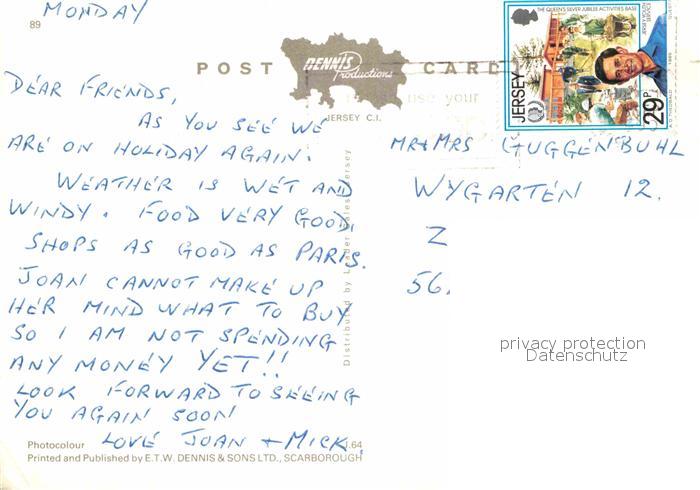 MONDAY
89
POST CARD
DENNIS
Productions
JERSEY C.I.
use your
THE QUEEN'S SILVER JUBILEE ACTIVITIES BASE
JERSEY
29P
DEAR FRIENDS,
AS YOU SEE WE
ARE ON HOLIDAY AGAIN.
WEATHER IS WET AND
WINDY. FOOD VERY GOOD,
SHOPS AS GOOD AS PARIS.
JOAN CANNOT MAKE UP
HER MIND WHAT TO BUY
SO I AM NOT SPENDING
ANY MONEY YET!!
LOOK FORWARD TO SEEING
YOU AGAIN SOON
LOVE JOAN + MICK.
MR+MRS GUGGENBUHL
WYGARTEN 12.
Z
56.
privacy protection
Datenschutz
Distributed by Leader Sales Jersey
Photocolour
1.64
Printed and Published by E.T.W. DENNIS & SONS LTD., SCARBOROUGH